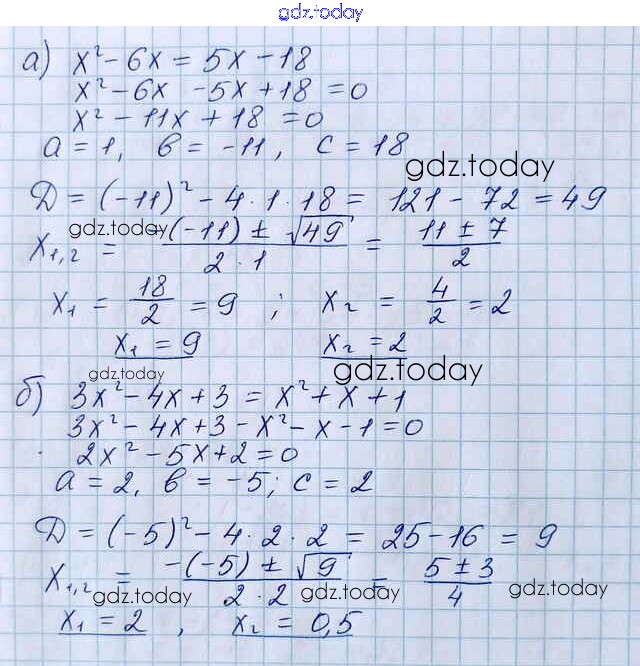 gdz.today
а) x² - 6x = 5x - 18
x² - 6x - 5x + 18 = 0
x² - 11x + 18 = 0
a = 1, b = -11, c = 18
gdz.today
D = (-11)² - 4 · 1 · 18 = 121 - 72 = 49
gdz.today
x₁,₂ = -(-11) ± √49 / 2 · 1 = 11 ± 7 / 2
x₁ = 18/2 = 9 ; x₂ = 4/2 = 2
x₁ = 9 x₂ = 2
gdz.today gdz.today
б) 3x² - 4x + 3 = x² + x + 1
3x² - 4x + 3 - x² - x - 1 = 0
2x² - 5x + 2 = 0
a = 2, b = -5; c = 2
D = (-5)² - 4 · 2 · 2 = 25 - 16 = 9
x₁,₂ = -(-5) ± √9 / 2 · 2 = 5 ± 3 / 4
gdz.today gdz.today gdz.today
x₁ = 2 , x₂ = 0,5